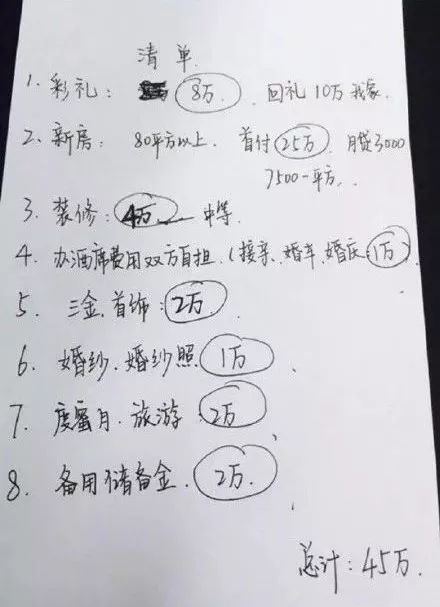 清单
1. 彩礼: 8万. 回礼10万我家.
2. 新房: 80平方以上. 首付25万. 月贷3000
7500一平方.
3. 装修: 4万 中等.
4. 办酒席费用双方自担. (接亲、婚车、婚庆1万)
5. 三金.首饰:2万.
6. 婚纱.婚纱照1万
7. 度蜜月.旅游 2万
8. 备用储备金.2万.
总计:45万.